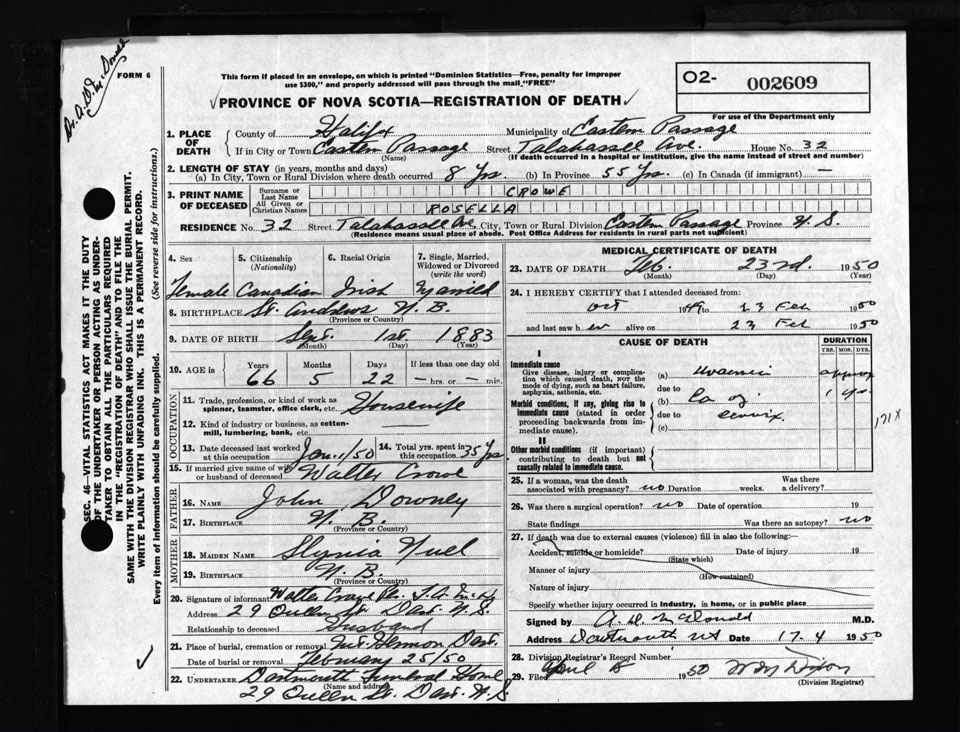 Dr. A. D. McDonald
FORM 6
This form if placed in an envelope, on which is printed "Dominion Statistics—Free, penalty for improper
use $300," and properly addressed will pass through the mail "FREE"
PROVINCE OF NOVA SCOTIA—REGISTRATION OF DEATH
O2- 002609
For use of the Department only
SEC. 46—VITAL STATISTICS ACT MAKES IT THE DUTY
OF THE UNDERTAKER OR PERSON ACTING AS UNDER-
TAKER TO OBTAIN ALL THE PARTICULARS REQUIRED
IN THE "REGISTRATION OF DEATH" AND TO FILE THE
SAME WITH THE DIVISION REGISTRAR WHO SHALL ISSUE THE BURIAL PERMIT.
WRITE PLAINLY WITH UNFADING INK. THIS IS A PERMANENT RECORD.
Every item of Information should be carefully supplied. (See reverse side for instructions.)
1. PLACE OF DEATH
County of Halifax Municipality of Eastern Passage
If in City or Town Eastern Passage Street Talahassell Ave. House No. 32
(Name) (If death occurred in a hospital or institution, give the name instead of street and number)
2. LENGTH OF STAY (in years, months and days)
(a) In City, Town or Rural Division where death occurred 8 Yrs. (b) In Province 55 Yrs. (c) In Canada (if immigrant) —
3. PRINT NAME OF DECEASED
Surname or Last Name CROWE
All Given or Christian Names ROSELLA
RESIDENCE No. 32 Street Talahassell Ave City, Town or Rural Division Eastern Passage Province N. S.
(Residence means usual place of abode. Post Office Address for residents in rural parts not sufficient)
4. Sex 5. Citizenship (Nationality) 6. Racial Origin 7. Single, Married, Widowed or Divorced (write the word)
Female Canadian Irish Married
8. BIRTHPLACE St. Andrews N. B.
(Province or Country)
9. DATE OF BIRTH Sept. 1st. 1883
(Month) (Day) (Year)
10. AGE in Years Months Days If less than one day old
66 5 22 — hrs. or — min.
OCCUPATION
11. Trade, profession, or kind of work as
spinner, teamster, office clerk, etc. Housewife
12. Kind of industry or business, as cotton-
mill, lumbering, bank, etc. —
13. Date deceased last worked at this occupation Jan. 1/50 14. Total yrs. spent in this occupation 35 Yrs
15. If married give name of wife or husband of deceased Walter Crowe
FATHER
16. NAME John Downey
17. BIRTHPLACE N. B.
(Province or Country)
MOTHER
18. MAIDEN NAME
19. BIRTHPLACE N. B.
(Province or Country)
20. Signature of informant Walter Crowe
Address 29 Queen St. Dart. N. S.
Relationship to deceased Husband
21. Place of burial, cremation or removal Mt. Hermon Dart.
Date of burial or removal February 25/50
22. UNDERTAKER Dartmouth Funeral Home
(Name and address)
29 Queen St. Dart. N. S.
MEDICAL CERTIFICATE OF DEATH
23. DATE OF DEATH Feb. 23rd. 1950
(Month) (Day) (Year)
24. I HEREBY CERTIFY that I attended deceased from:
Oct 1949 to 23 Feb 1950
and last saw her alive on 23 Feb 1950
CAUSE OF DEATH
DURATION
YRS. MOS. DYS.
I
Immediate cause
Give disease, injury or complica-
tion which caused death, not the
mode of dying, such as heart failure,
asphyxia, asthenia, etc.
(a) uraemia approx
due to
Morbid conditions, if any, giving rise to
immediate cause (stated in order
proceeding backwards from im-
mediate cause).
(b) Ca of 1 yr
due to cervix
(c)
171X
II
Other morbid conditions (if important)
contributing to death but not
causally related to immediate cause.
25. If a woman, was the death associated with pregnancy? no Duration weeks. Was there a delivery?
26. Was there a surgical operation? no Date of operation 19
State findings Was there an autopsy? no
27. If death was due to external causes (violence) fill in also the following:—
Accident, suicide or homicide? Date of injury 19
(State which)
Manner of injury
(How sustained)
Nature of injury
Specify whether injury occurred in industry, in home, or in public place
Signed by A. D. McDonald M.D.
Address Dartmouth NS Date 17-4 1950
28. Division Registrar's Record Number
29. Filed April 1950
(Division Registrar)